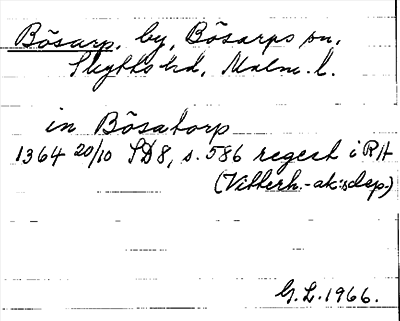 Bösarp, by, Bösarps sn,
Skytts hd, Malm. l.
in Bösatorp
1364 20/10 SD8, s. 586 regest i RA
(Vitterh.-ak:s dep.)
G.L. 1966.